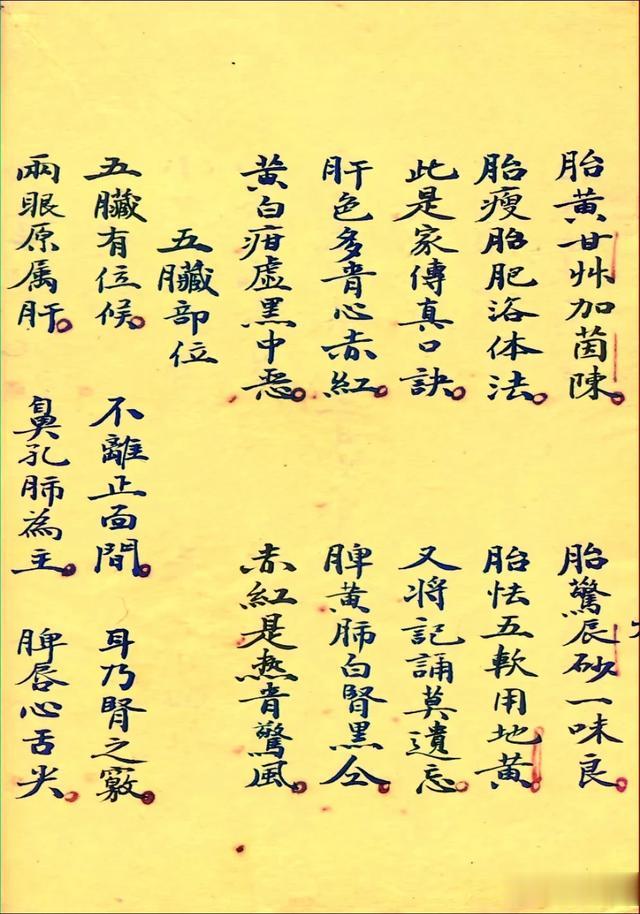 胎黄甘艸加茵陳。 胎驚辰砂一味良。
胎瘦胎肥浴体法。 胎怯五軟用地黄。
此是家傳真口訣。 又将記誦莫遺忘。
肝色多青心赤紅。 脾黄肺白腎黑仝。
黄白疳虛黑中惡。 赤紅是熱青驚風。
五臟部位
五臟有位候。 不離正面間。 耳乃腎之竅。
兩眼原属肝。 鼻孔肺為主。 脾唇心舌尖。